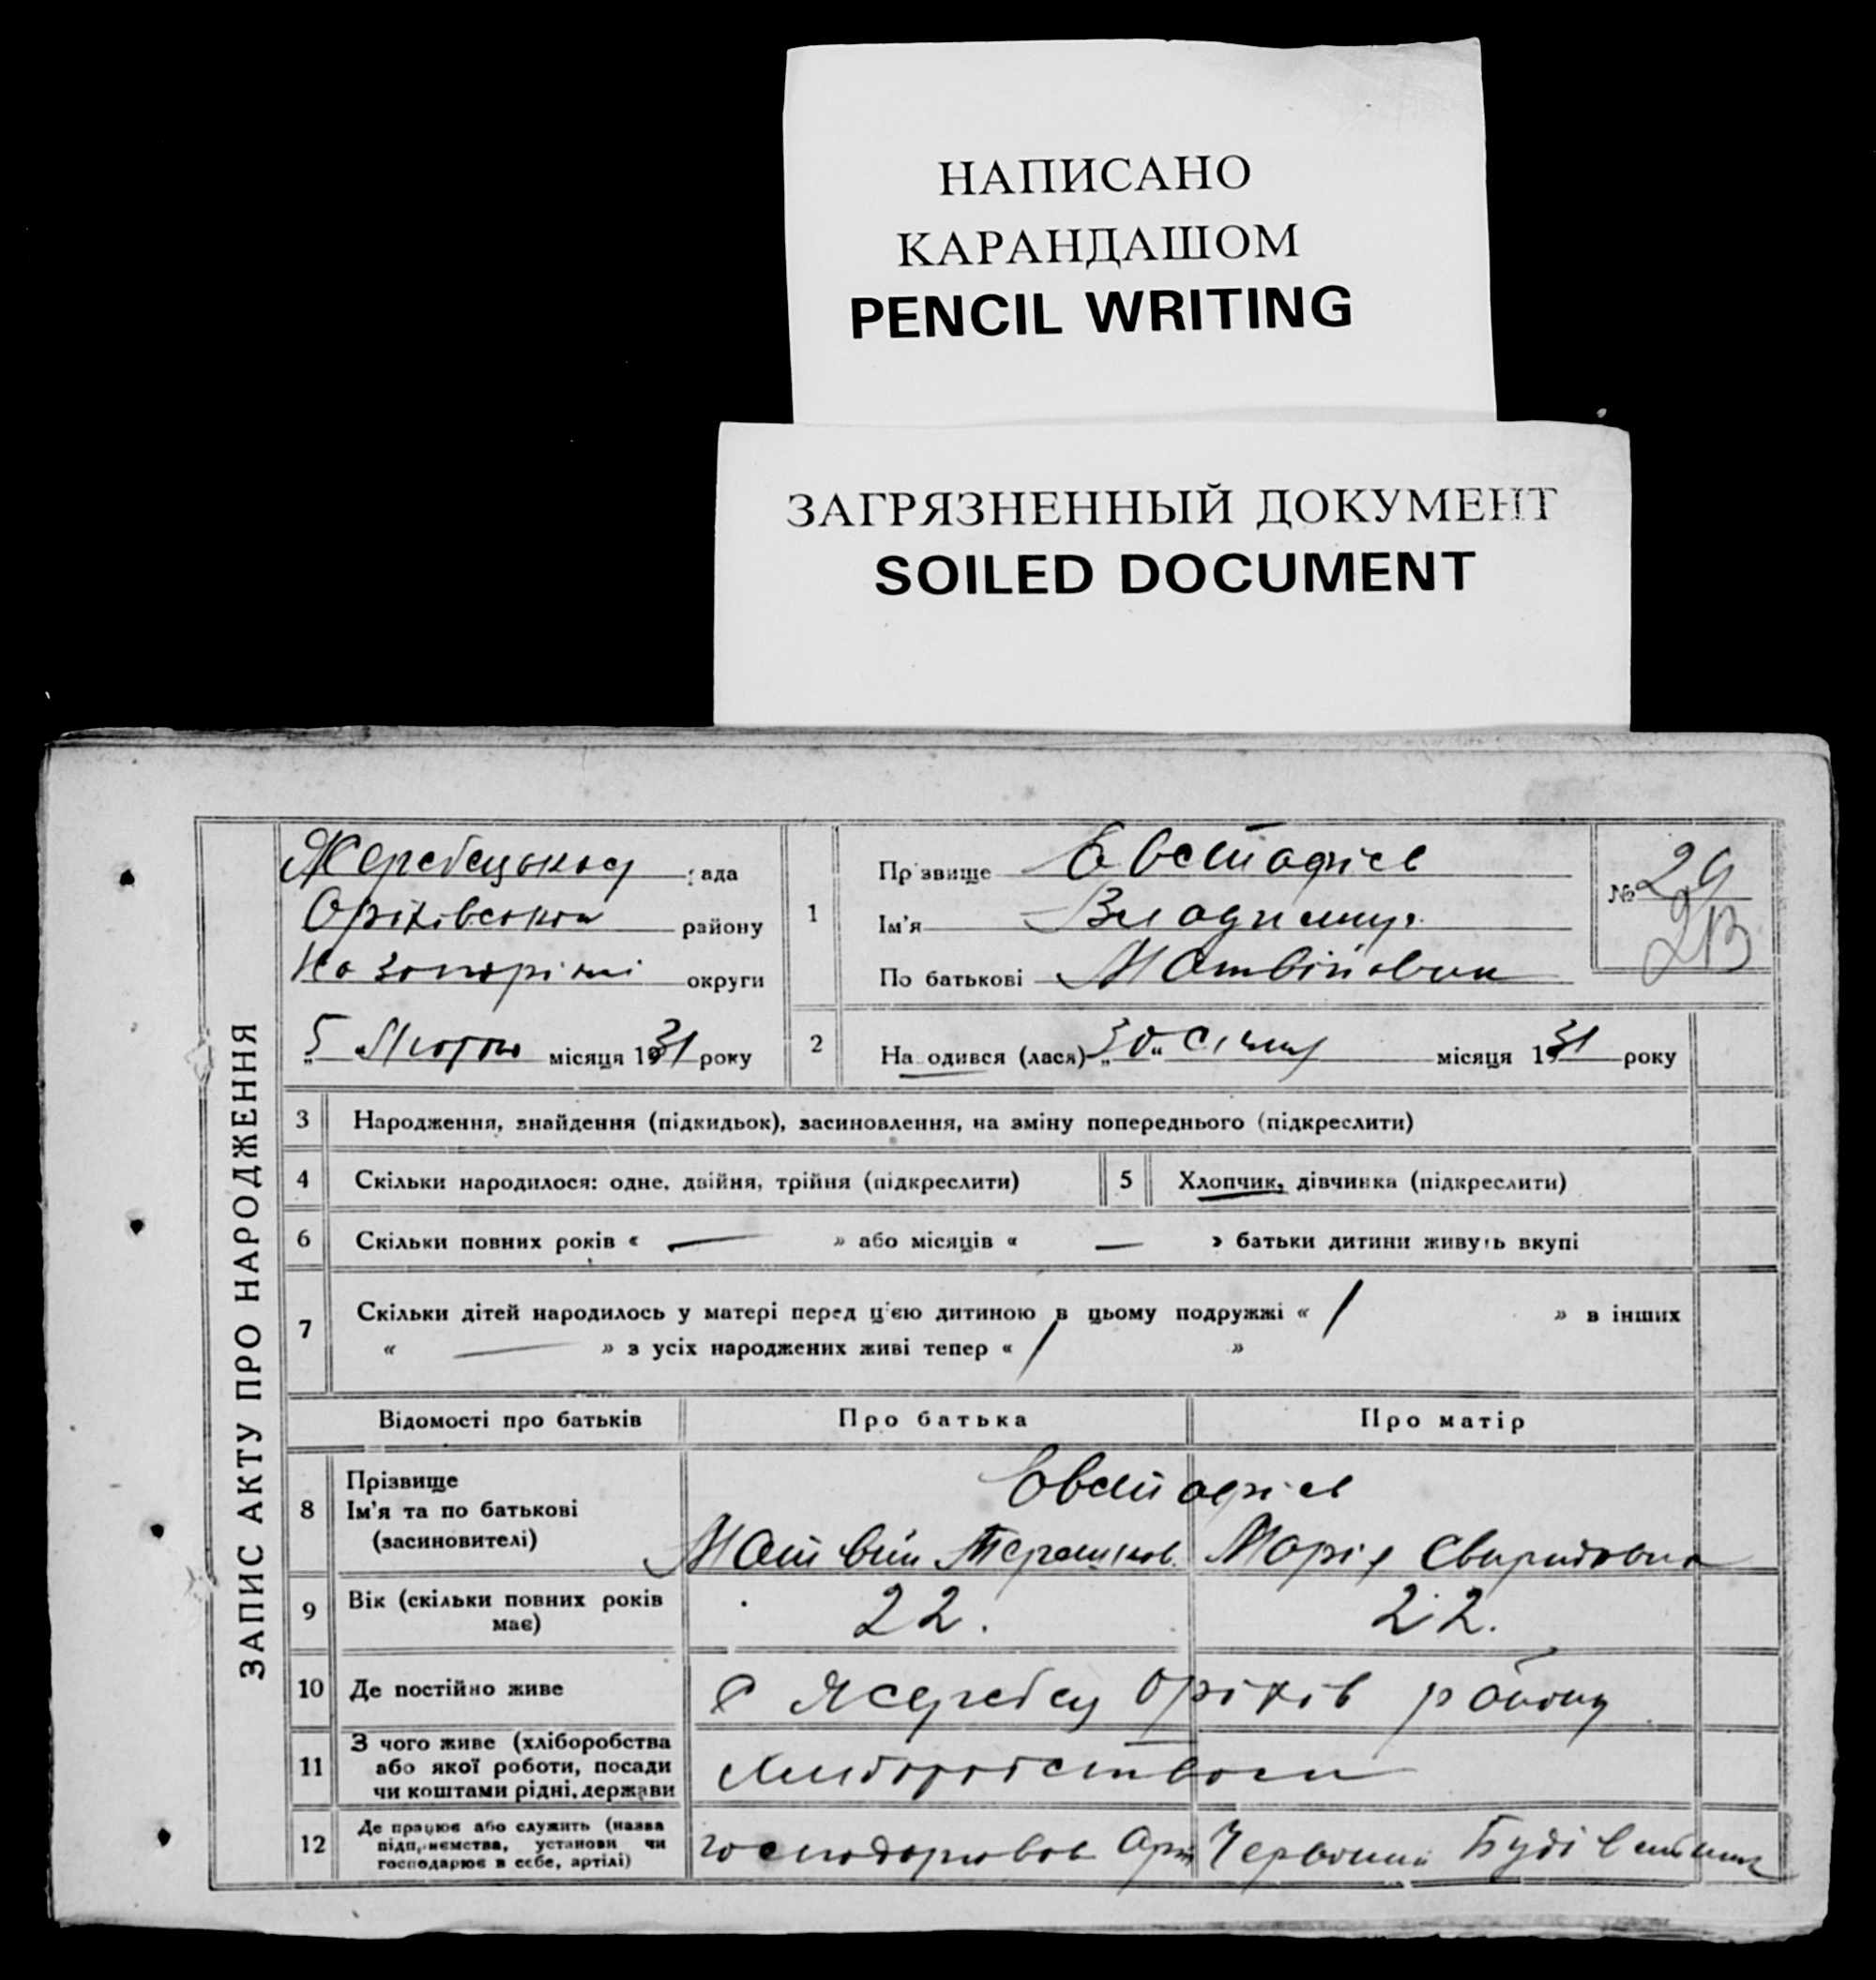 НАПИСАНО
КАРАНДАШОМ
PENCIL WRITING
ЗАГРЯЗНЕННЫЙ ДОКУМЕНТ
SOILED DOCUMENT
ЗАПИС АКТУ ПРО НАРОДЖЕННЯ
Жеребецькою рада
Оріхівського району
На Запоріжжі округи
5 Лютого місяця 1931 року
1 Прізвище Євстафієв
Ім'я Владимир
По батькові Матвійович
№ 29
2 На одився (лася) „30“ Січня місяця 1931 року
3 Народження, знайдення (підкидьок), засиновлення, на зміну попереднього (підкреслити)
4 Скільки народилося: одне, двійня, трійня (підкреслити) 5 Хлопчик, дівчинка (підкреслити)
6 Скільки повних років « — » або місяців « — » батьки дитини живуть вкупі
7 Скільки дітей народилось у матері перед ц'єю дитиною в цьому подружжі « 1 » в інших
« — » з усіх народжених живі тепер « 1 »
Відомості про батьків Про батька Про матір
8 Прізвище
Ім'я та по батькові
(засиновителі)
Євстафієв
Матвій Марія Свиридовна
9 Вік (скільки повних років
має)
22. 22.
10 Де постійно живе С Жеребец Оріхів району
11 З чого живе (хліборобства
або якої роботи, посади
чи коштами рідні, держави
Хліборобством
12 Де працює або служить (назва
підприємства, установи чи
господарює в себе, артілі)
Арт Червоний Будівельник